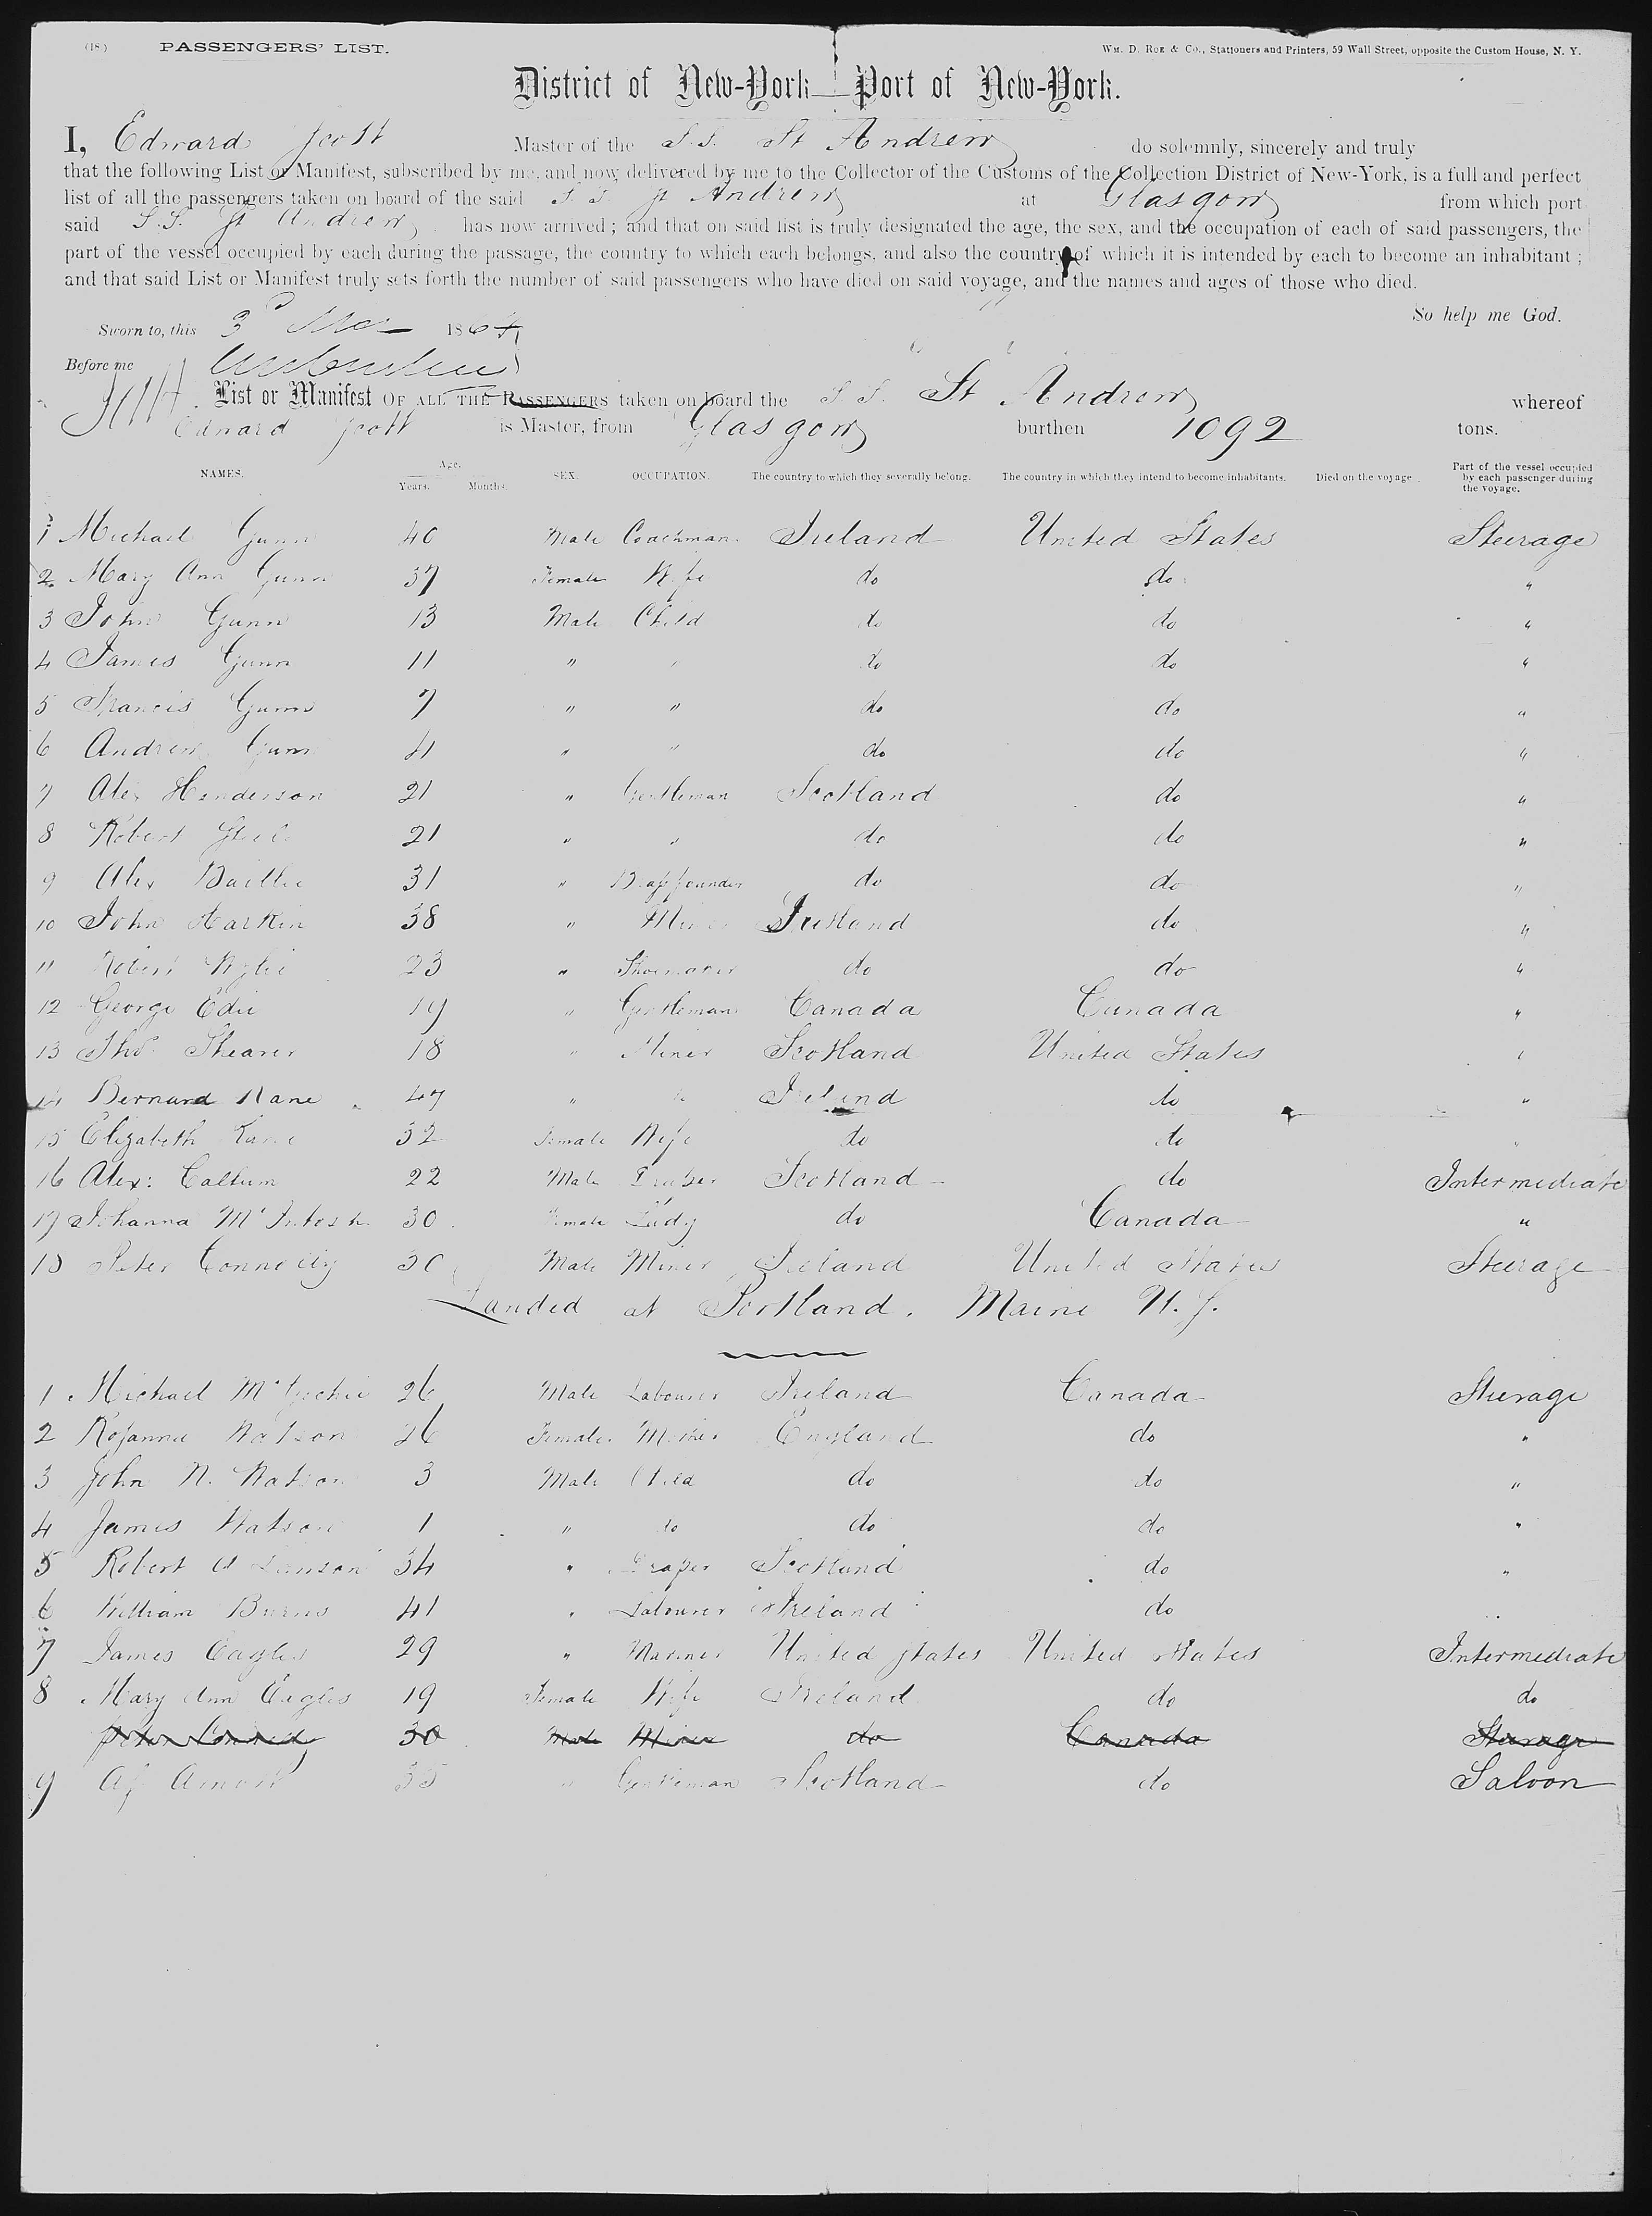 (18) PASSENGERS' LIST. Wm. D. Roe & Co., Stationers and Printers, 59 Wall Street, opposite the Custom House, N. Y.
District of New-York—Port of New-York.
I, Edward Scott Master of the S.S. St Andrew do solemnly, sincerely and truly
that the following List or Manifest, subscribed by me, and now delivered by me to the Collector of the Customs of the Collection District of New-York, is a full and perfect
list of all the passengers taken on board of the said S.S. St Andrew at Glasgow from which port
said S.S. St Andrew has now arrived; and that on said list is truly designated the age, the sex, and the occupation of each of said passengers, the
part of the vessel occupied by each during the passage, the country to which each belongs, and also the country of which it is intended by each to become an inhabitant;
and that said List or Manifest truly sets forth the number of said passengers who have died on said voyage, and the names and ages of those who died.
So help me God.
Sworn to, this 3d 1864
Before me
List or Manifest OF ALL THE PASSENGERS taken on board the S.S. St Andrew whereof
Edward Scott is Master, from Glasgow burthen 1092 tons.
NAMES. Age. Years. Months. SEX. OCCUPATION. The country to which they severally belong. The country in which they intend to become inhabitants. Died on the voyage. Part of the vessel occupied by each passenger during the voyage.
1 Michael Gunn 40 Male Coachman Ireland United States Steerage
2 Mary Ann Gunn 37 Female Wife do do "
3 John Gunn 13 Male Child do do "
4 James Gunn 11 " " do do "
5 Francis Gunn 7 " " do do "
6 Andrew Gunn 4 " " do do "
7 Alex Henderson 21 " Gentleman Scotland do "
8 Robert 21 " " do do "
9 Alex Baillie 31 " Brassfounder do do "
10 John Harkin 38 " Miner do "
11 Robert Wylie 23 " Shoemaker do do "
12 George Edie 19 " Gentleman Canada Canada "
13 Thos Shearer 18 " Miner Scotland United States "
14 Bernard Kane 47 " do Ireland do "
15 Elizabeth Kane 32 Female Wife do do "
16 Alex: Callum 22 Male Draper Scotland do Intermediate
17 Johanna McIntosh 30 Female Lady do Canada "
18 Peter Connelly 30 Male Miner Ireland United States Steerage
Landed at Portland, Maine U.S.
1 Michael 26 Male Labourer Ireland Canada Steerage
2 Rosanna Watson 26 Female Mother England do "
3 John W. Watson 3 Male Child do do "
4 James Watson 1 " do do do "
5 Robert 34 " Draper Scotland do "
6 William Burns 41 " Labourer Ireland do "
7 James Eagles 29 " Mariner United States United States Intermediate
8 Mary Ann Eagles 19 Female Wife Ireland do do
30 Male Miner do Canada Steerage
9 35 " Gentleman Scotland do Saloon